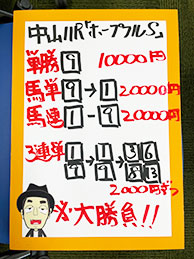 中山11R「ホープフルS」
単勝 9 10000円
馬単 9→1 20000円
馬連 1-9 20000円
3連単 1 9→1 9→3 6 8 13
2000円ずつ
必大勝負!!